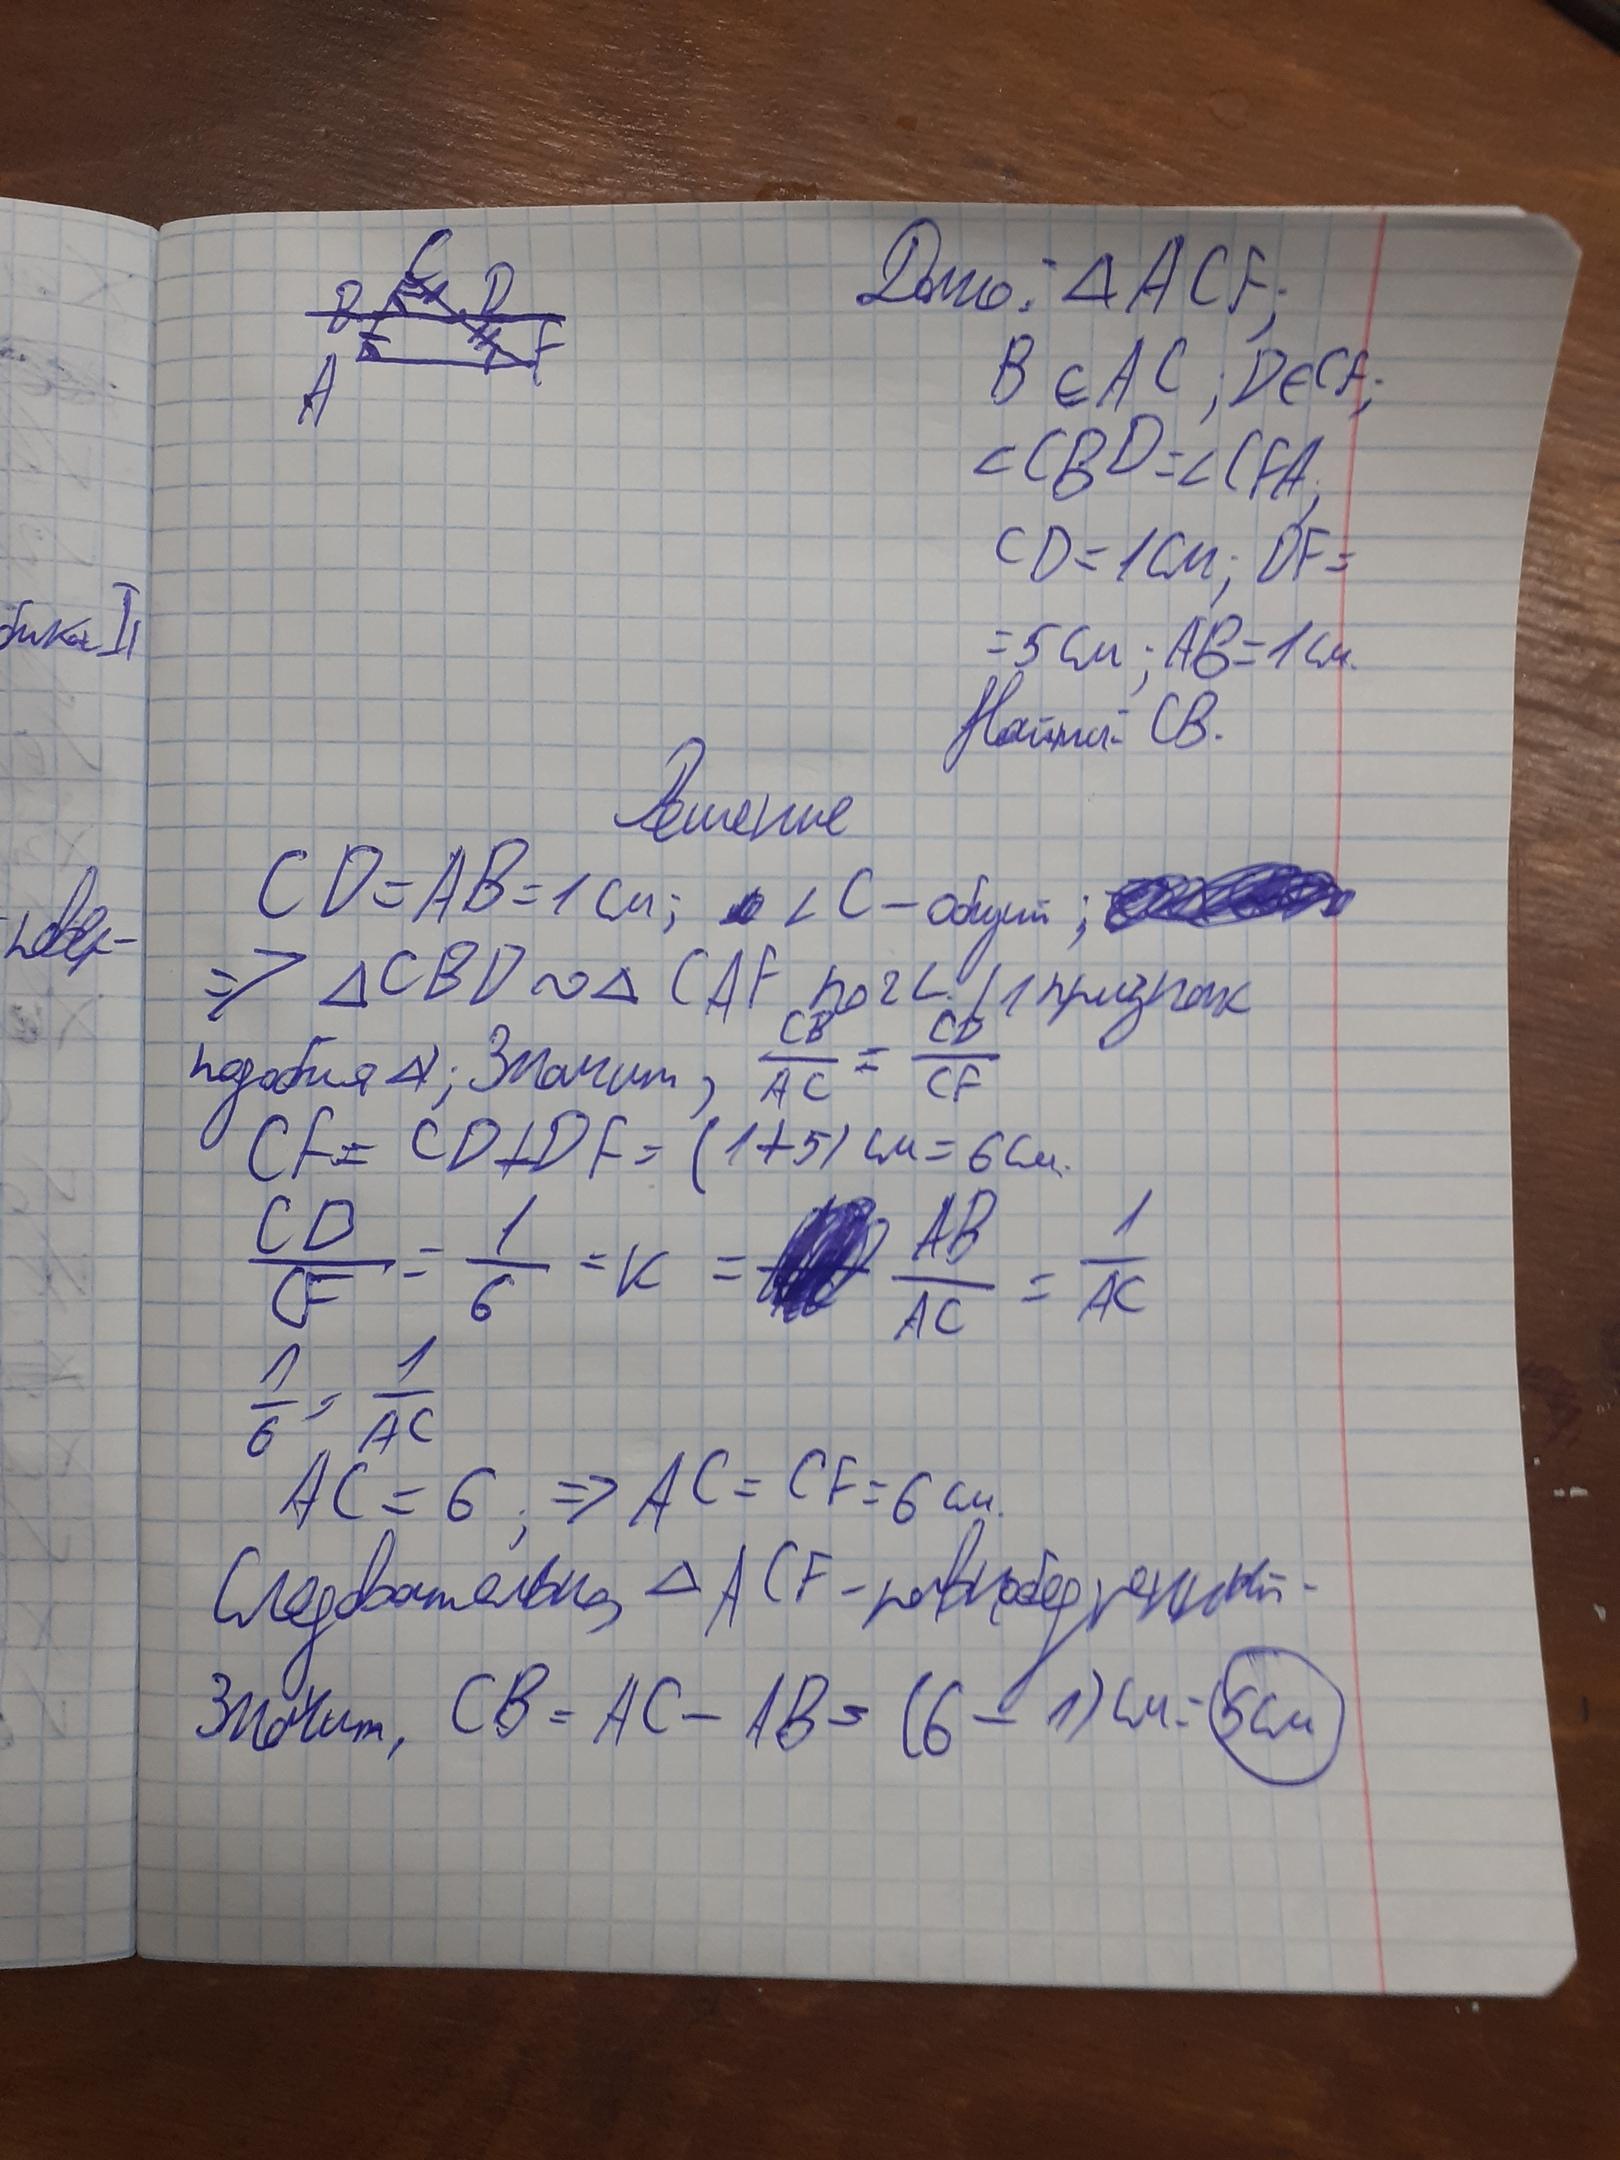 C
B D
A F
Дано: △ACF;
B∈AC; D∈CF;
∠CBD=∠CFA;
CD=1см; DF=
=5см; AB=1см.
Найти: CB.
Решение
CD=AB=1см; ∠C-общий;
=> △CBD∾△CAF по 2∠. (1 признак
подобия △); Значит, CB/AC = CD/CF
CF= CD+DF=(1+5)см=6см.
CD/CF = 1/6 = K = AB/AC = 1/AC
1/6 = 1/AC
AC=6; => AC=CF=6см.
Следовательно, △ACF-равнобедренный.
Значит, CB=AC-AB=(6-1)см=5см